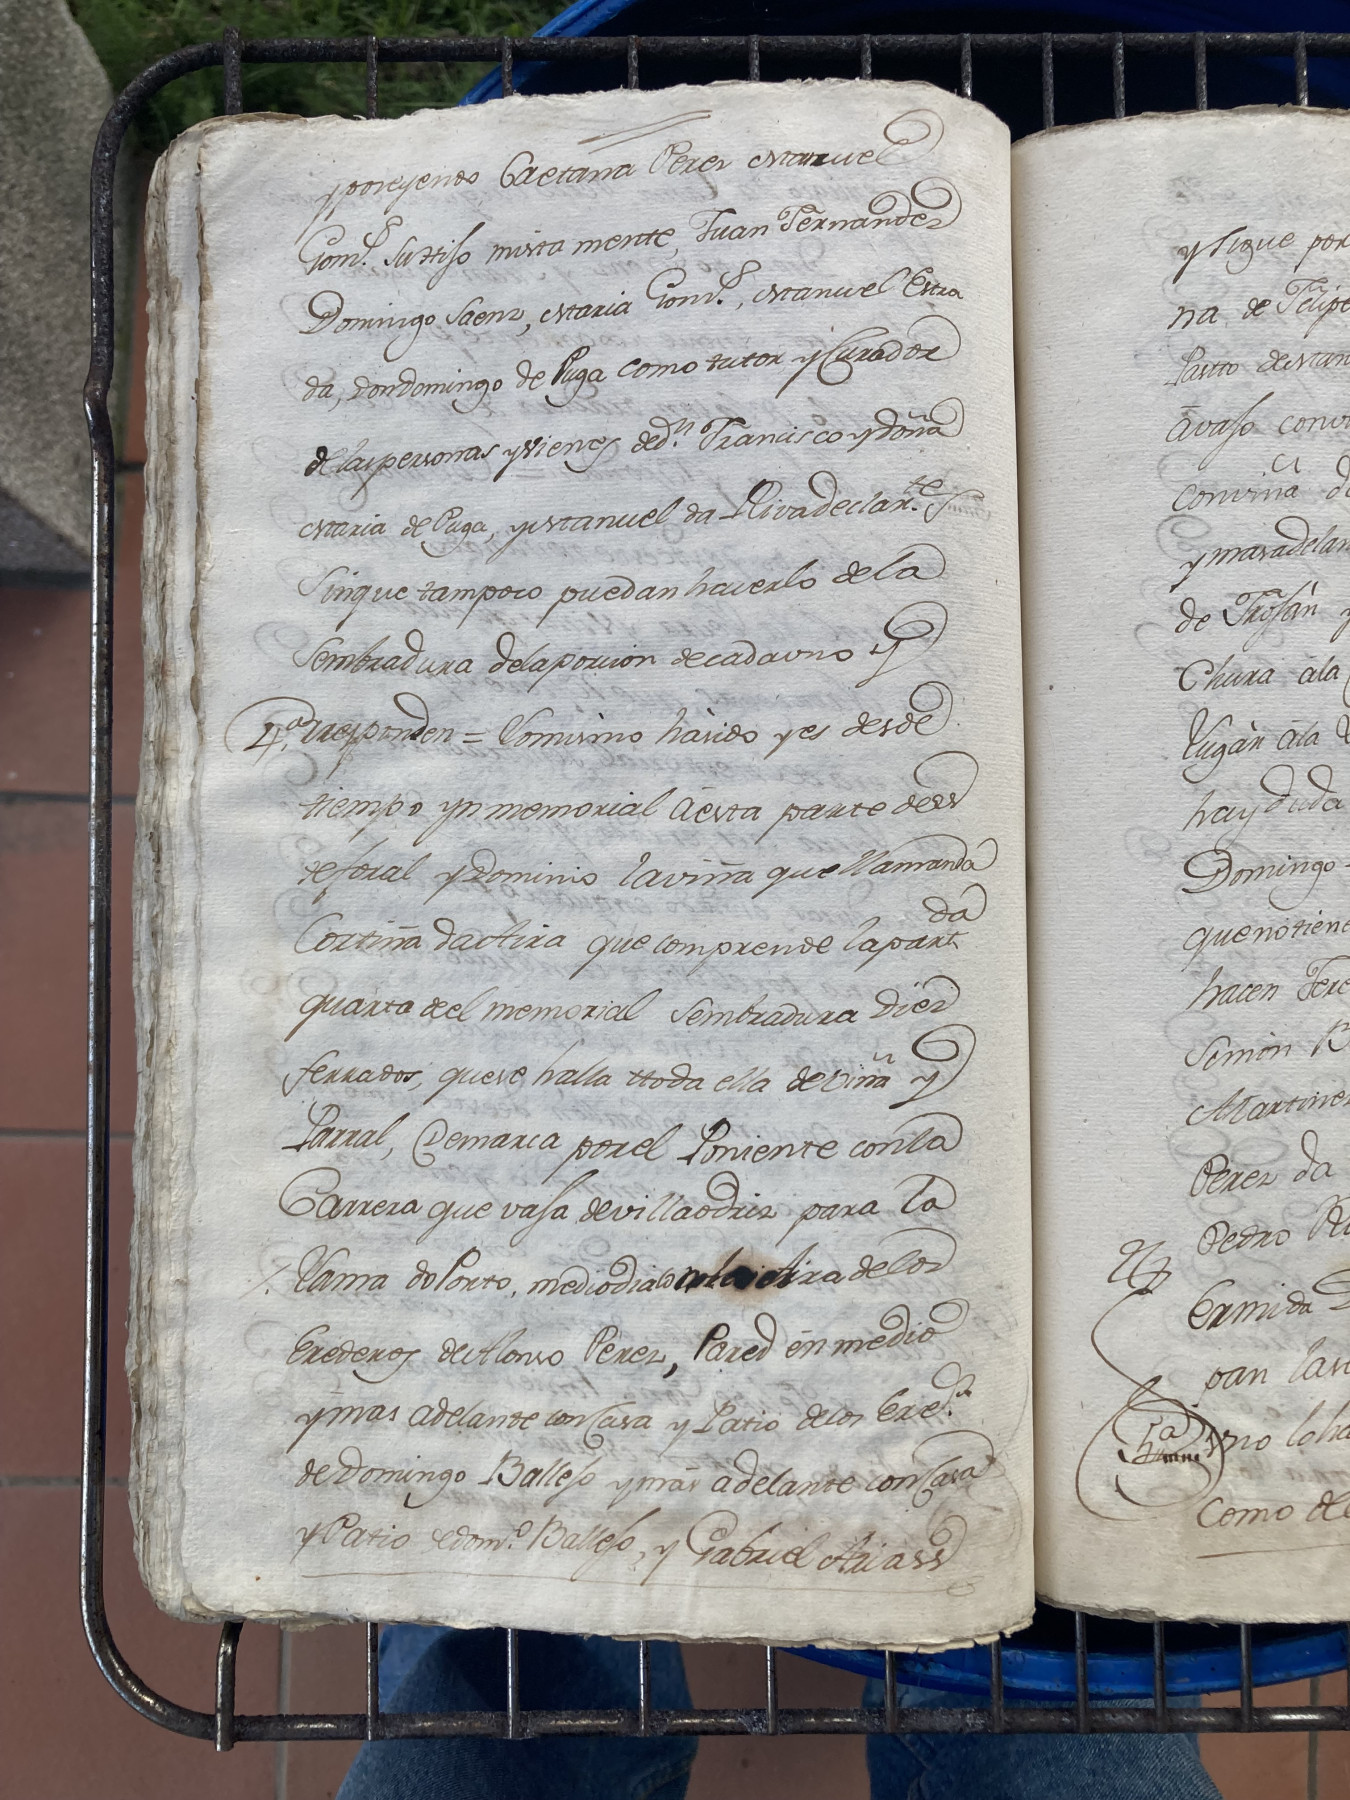 yposeyendo Caetana Perez Manuel
Gomz. Suttiso mista mente, Juan Fernandez
Domingo Saenz, Maria Gomz., Manuel Estra
da, Don domingo de Puga como tutor y Curador
de las personas yvienes de dn. Francisco y Doña
Maria de Puga, y Manuel da Riva declarte.s
Sinque tampoco puedan haverlo de la
Sembradura dela porcion de cada uno y
4.a responden = Lomismo hásido y es desde
tiempo yn memorial áesta parte de ss
defforal y Dominio laviña que llaman da
Cortiña da Aira que comprende la partda
quarta del memorial Sembradura Diez
ferrados, que se halla ttoda ella de viña y
Parral, Demarca por el Poniente con la
Carrera que vasa de villaodriz para la
Lama do Porto, mediodia con la Aira de los
Erederos de Alonso Perez, Pared en medio
ymas adelante con Casa y Patio de los Ered.s
de Domingo Balleso ymás adelante con Casa
y Patio de dom.o Balleso, y Gabriel Arias ss
y sigue por
na de Felipe
Pastto de Man
ávaso conv
Conviña d
y mas adelan
de Trosán y
Chura ála
Lugár ála
hay duda
Domingo
que no tiene
hacen Fere
Simón B
Martinez
Perez da
Pedro Ri
Ermida D
pan las
uno lo ha
como de